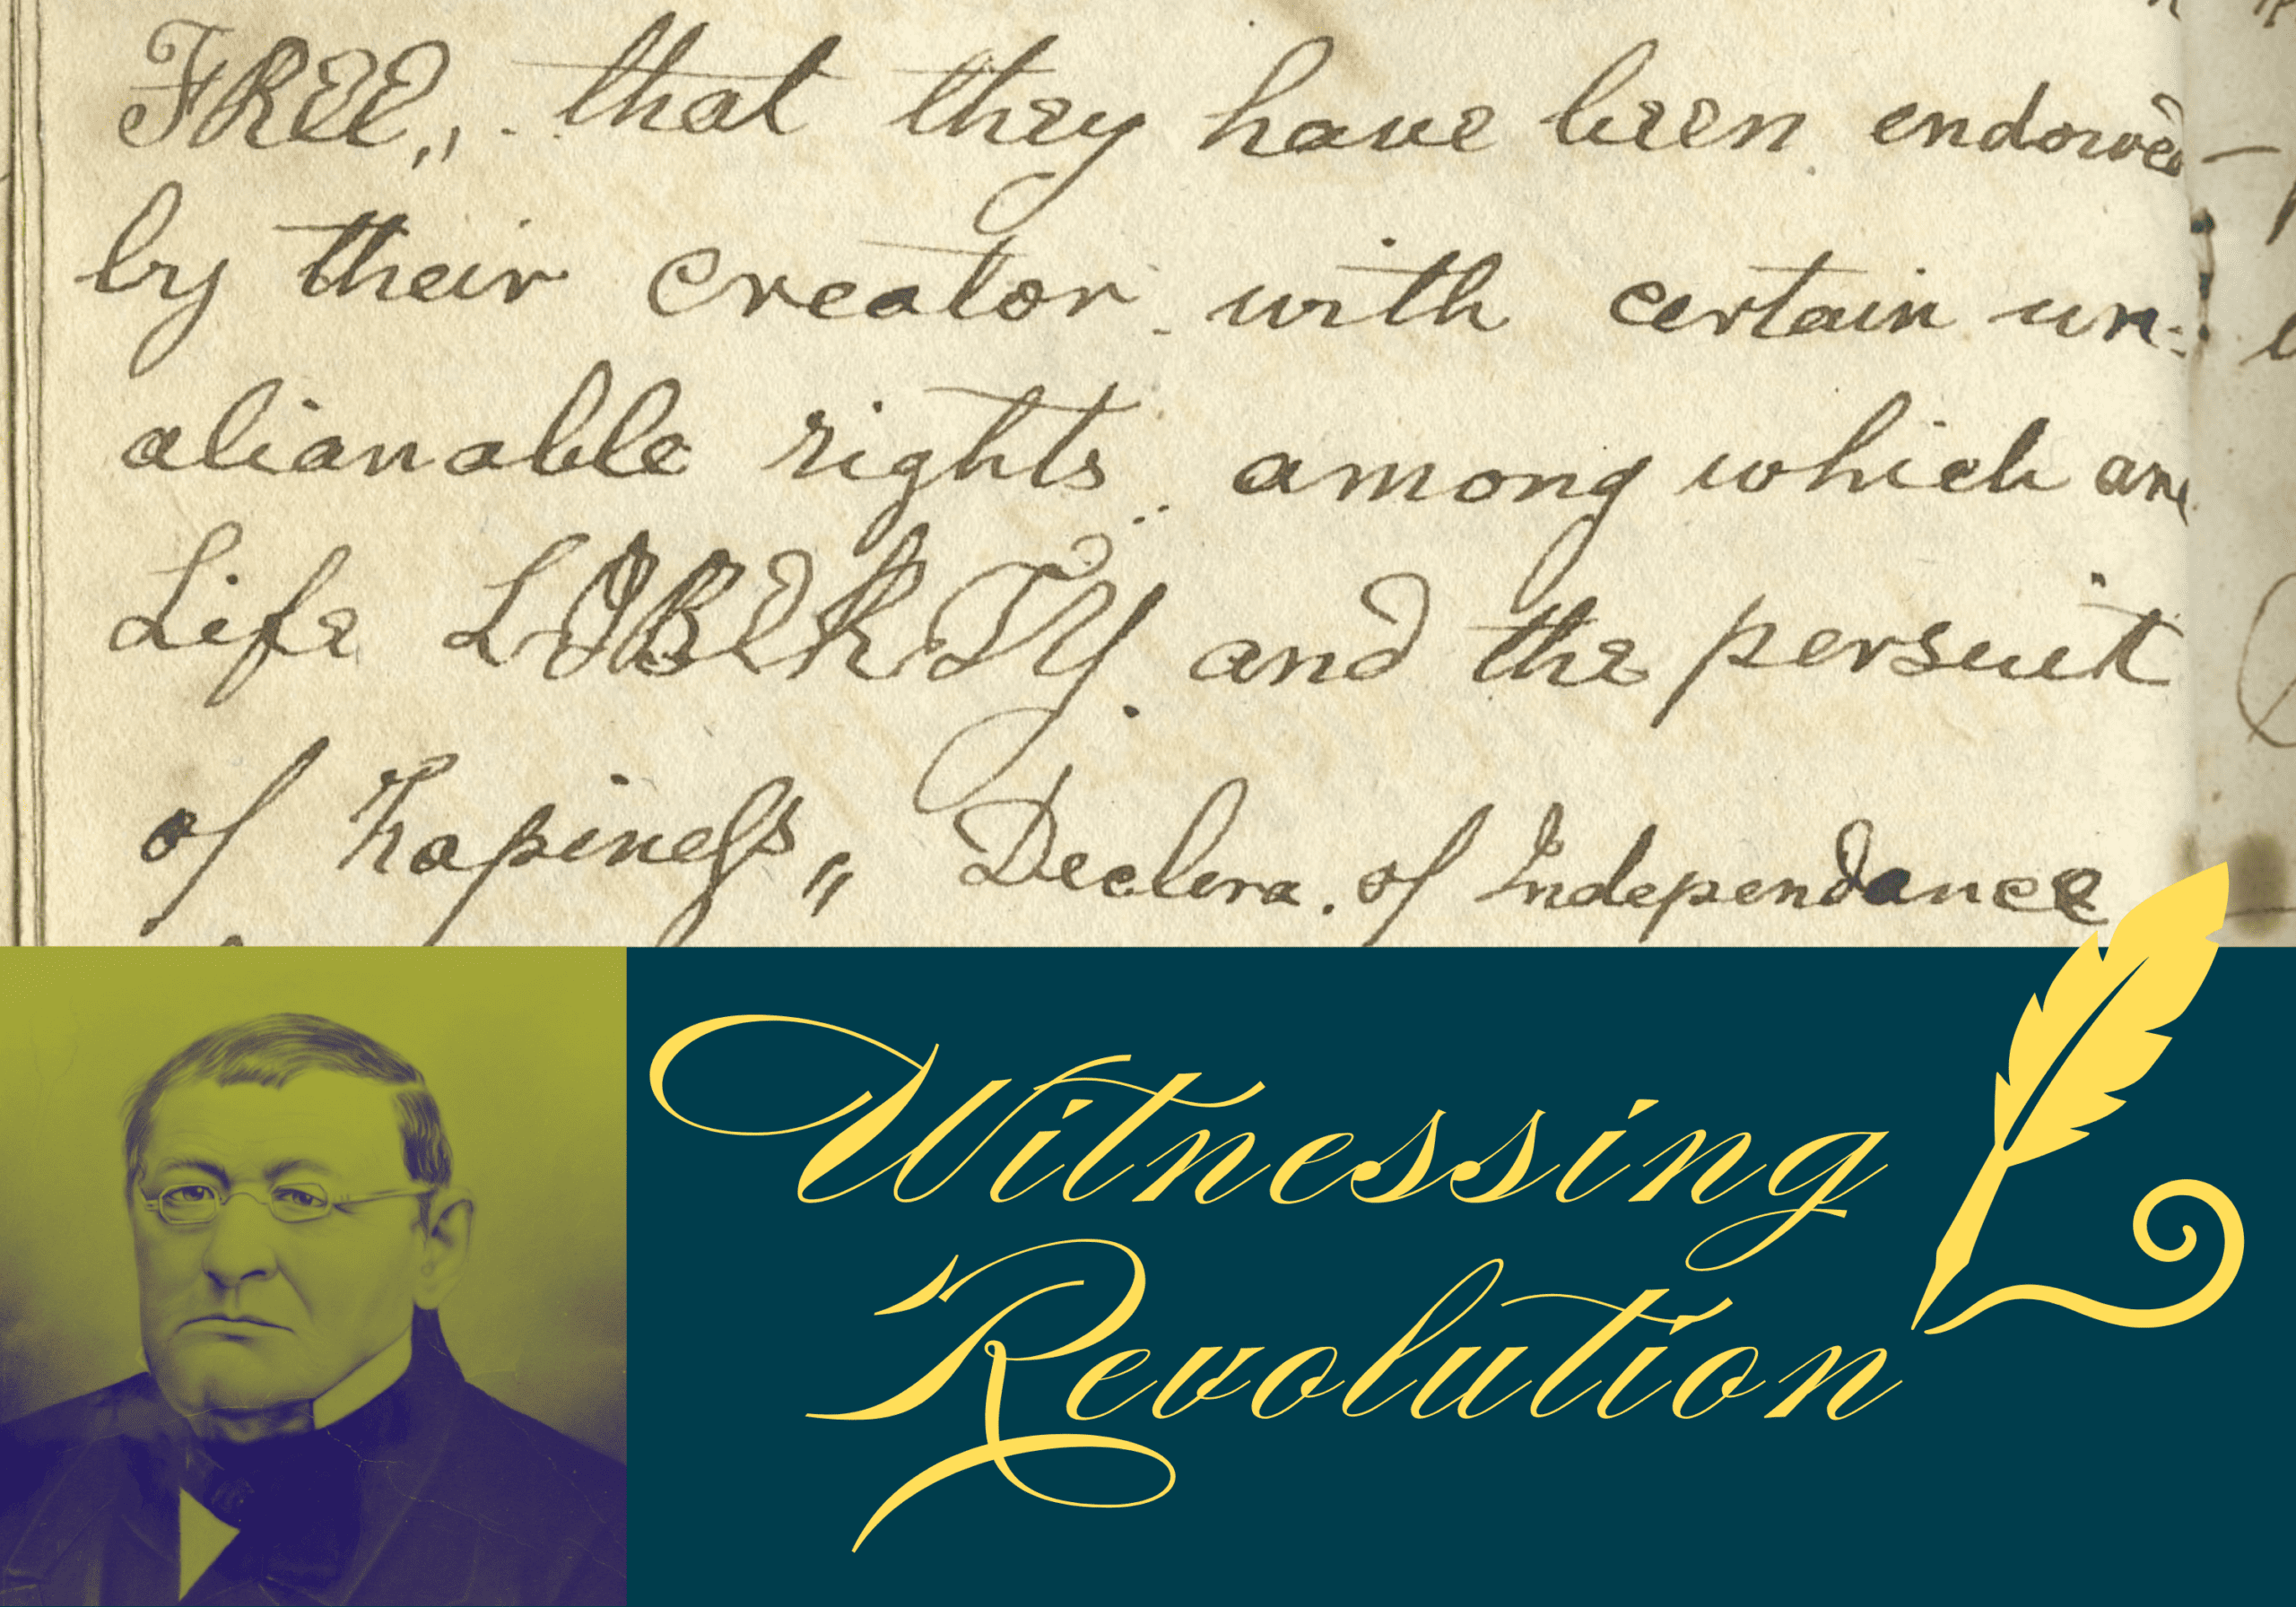 FREE,, that they have been endowed
by their creator with certain un-
alianable rights .. among which are
Life LIBERTY. and the persuit
of hapiness „ Declera. of Independance
Witnessing
Revolution